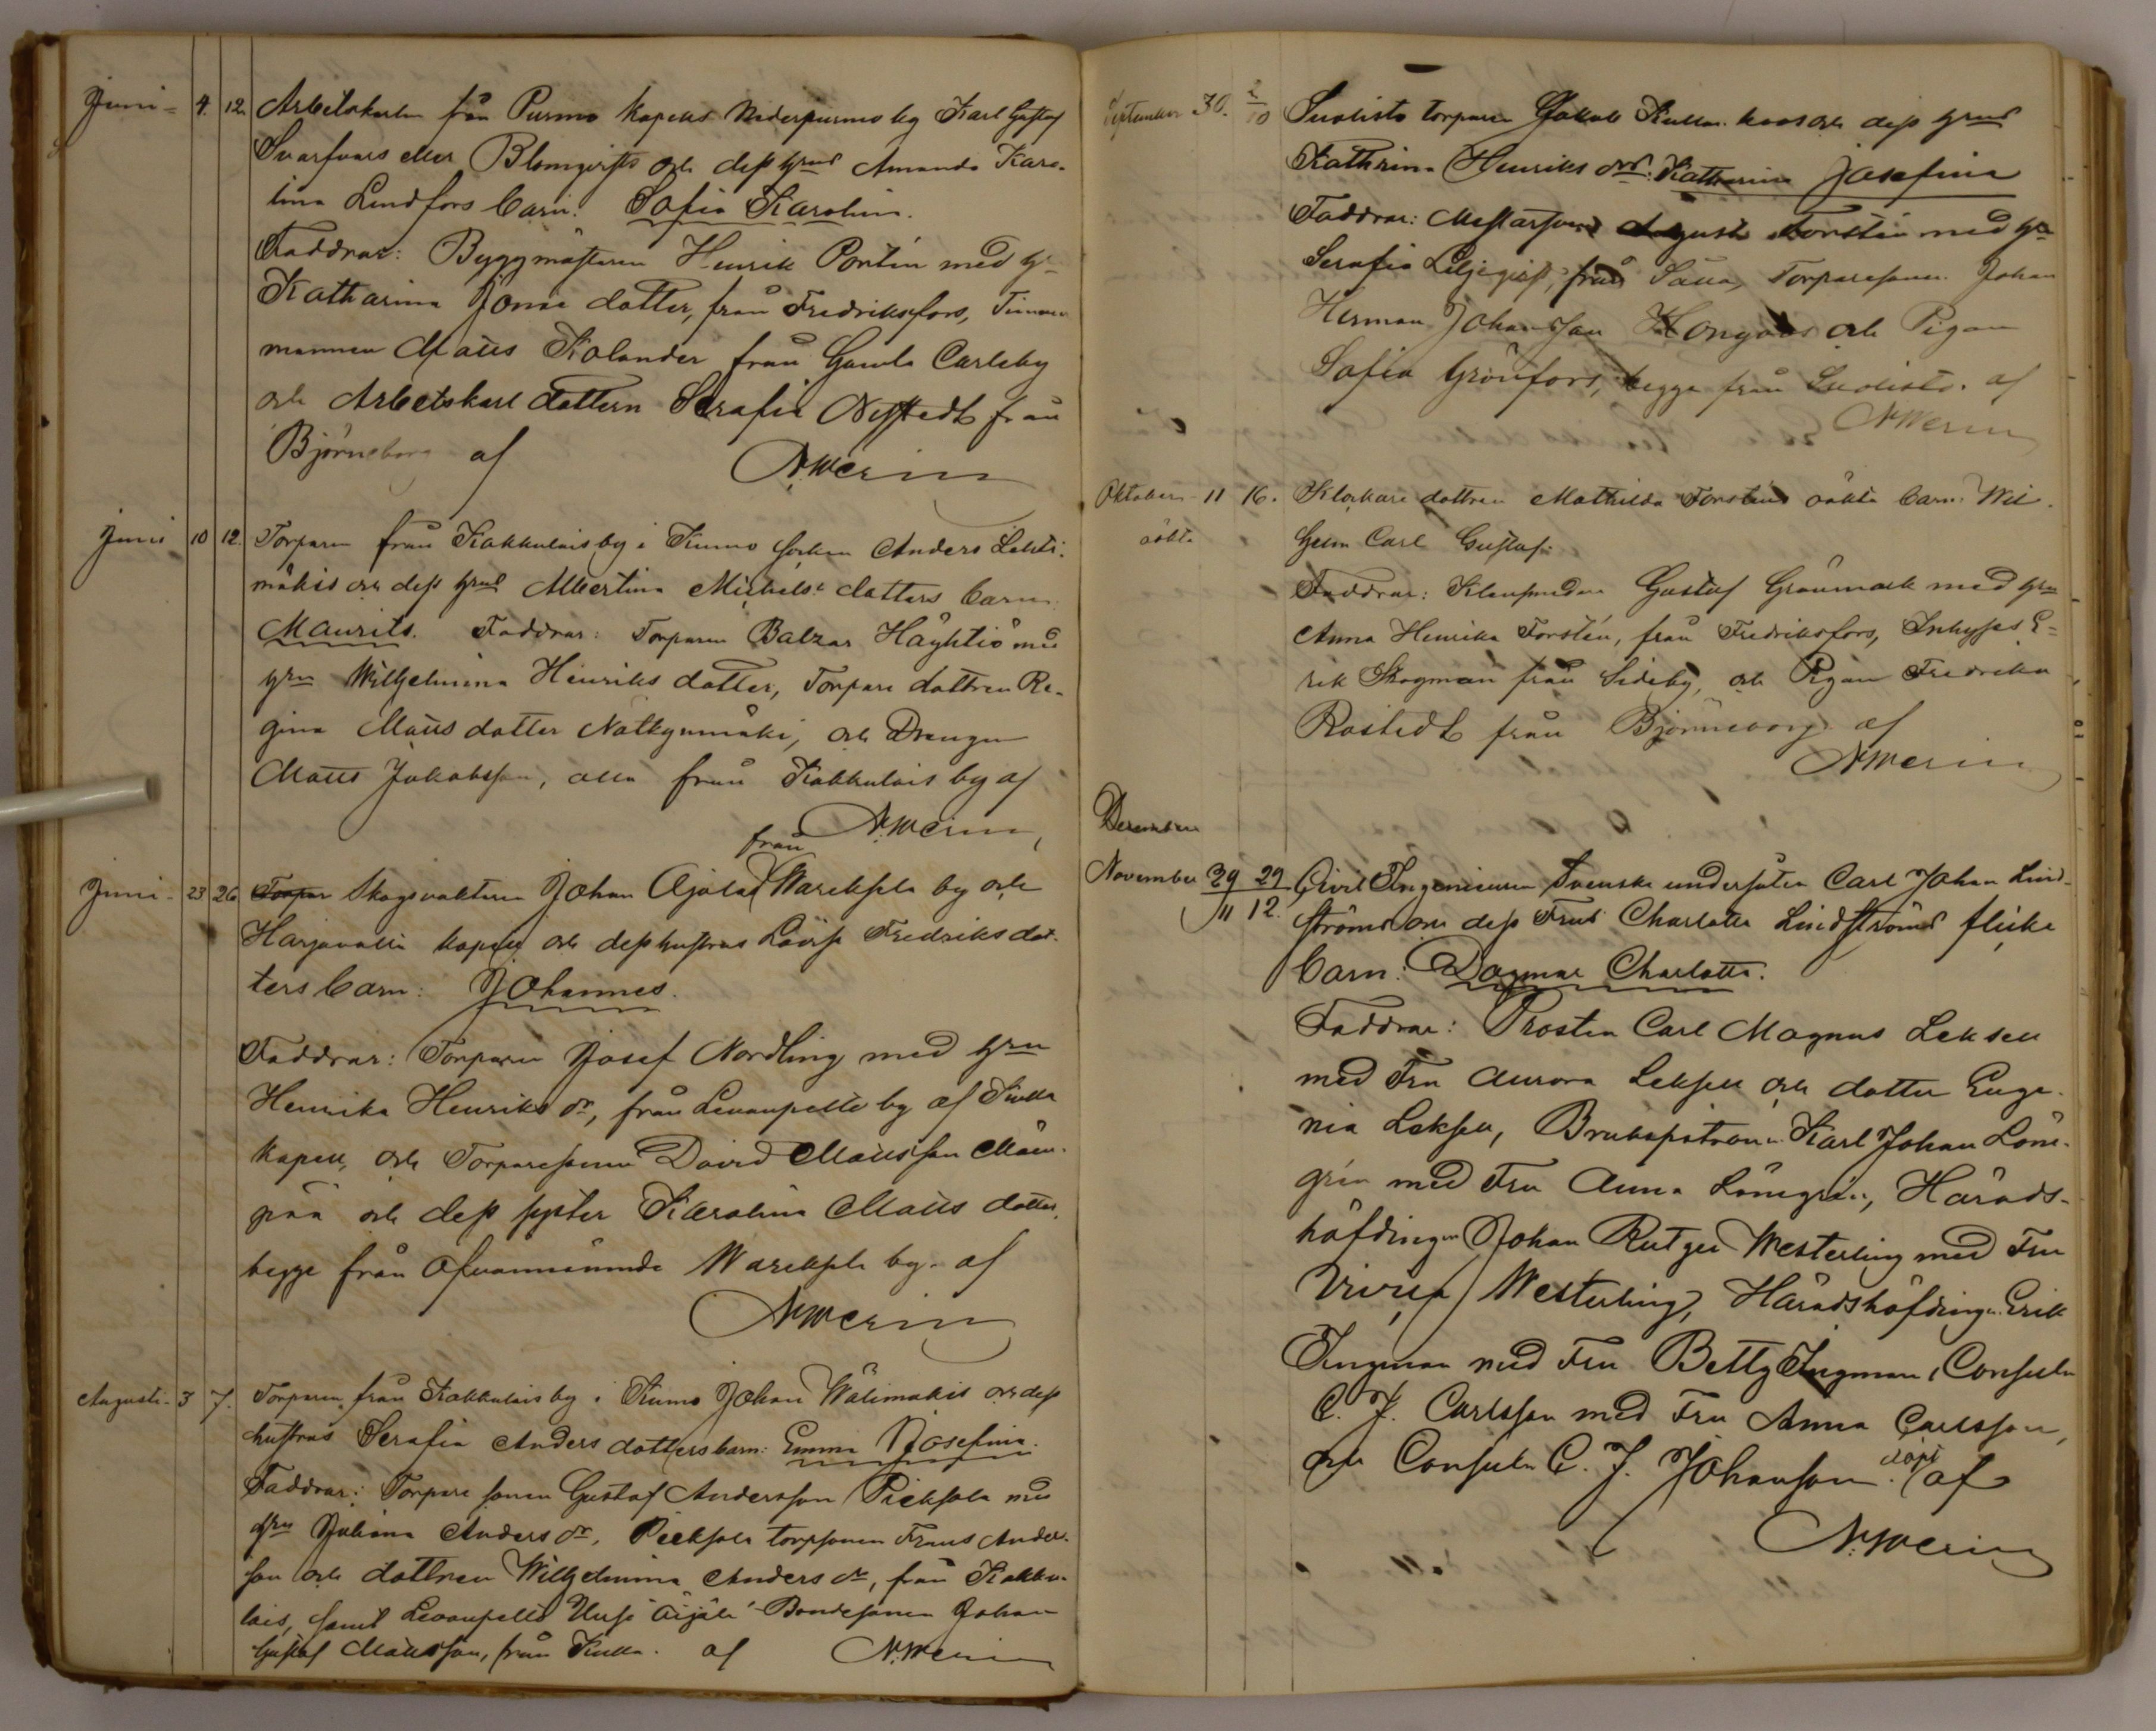 Juni - 4. 12 Arbetskarlen från Purmo kapells Nederpurmo by Karl Gustaf
Svarfvars eller Blomqvists och dess hrus Amanda Karo-
lina Lindfors barn: Sofia Karolina.
Faddrar: Byggmästaren Henrik Portin med hr
Katharina Jonae dotter, från Fredriksfors, Timmer
mannen Matts Kolander från Gamla Carlsby
och Arbetskarl dottern Serafia Nystedt från
Björneborg af
N. Merin
Juni 10 12. Torparen från Kakkulais by i Kumo socken Anders Lehti-
mäkis och dess hrus Albertina Michels dotters barn:
Maurits. Faddrar: Torparen Balzar Häyhtiö med
hru Wilhelmina Henriks dotter, Torpare dottren Re-
gina Matts dotter Nälkynmäki, och Drengen
Matts Jakobsson, alla från Kakkulais by af
N. Merin,
från
Juni - 23 26 Torpar Skogsvaktaren Johan Ojalas Warekselä by och
Harjavalta kapell och dess hustrus Lovisa Fredriksdot-
ters barn: Johannes.
Faddrar: Torparen Josef Nordling med hru
Henrika Henriks dr, från Levanpelto by af Kulla
kapell, och Torparesonen David Mattsson Män-
pää och dess syster Karolina Matts dotter,
begge från ofvannämnde Warekselä by. af
N. Merin
Augusti - 3 7. Torparen från Kakkulais by i Kumo Johan Wälimäkis och dess
hustrus Serafia Anders dotters barn: Emma Josefina.
Faddrar: Torpare sonen Gustaf Andersson Pieksala med
hru Juliana Anders dr, Pieksala torpsonen Frans Anders-
son och dottren Wilhelmina Anders dr, från Kakku-
lais, samt Levanpelto Äijälä Bondesonen Johan
Gustaf Mattsson, från Kulla. af N. Merin
September 30. 2/10 Suolisto torparen Jakob Kulla och dess hrus
Kathrina Henriks drs: Katharina Josefina
Faddrar: August Forstén med hru
Serafia Liljeqvist, från Torparesonen Johan
Herman Johansson och Pigan
Sofia Grönfors, begge från Suolisto. af
N Merin
Oktober 11 16. Klockare dottren Mathilda Forsténs oäkta barn: Wil-
oäkta helm Carl Gustaf:
Faddrar: Klensmeden Gustaf Grönmark med hru
Anna Henrika Forstén, från Fredriksfors, Inhyses E-
rik Skogman från Sideby, och Pigan Fredrika
Rostedt från Björneborg af
N Merin
December
November 29 29 Civil Ingenieuren Svenska undersåten Carl Johan Lind-
11 12. ströms och dess Frus Charlotta Lindströms flicke
barn: Dagmar Charlotta.
Faddrar: Prosten Carl Magnus Leksell
med Fru Aurora Leksell och dotter Euge-
nia Leksell, Brukspatron Karl Johan Lönne-
grén med Fru Anna Lönnegrén, Härads-
höfdingen Johan Rutger Westerling med Fru
Westerling, Häradshöfdingen Erik
Ingman med Fru Betty Ingman, Consuln
C. J. Carlsson med Fru Anna Carlsson,
och Consuln C. J. Johanson. döpt af
N. Merin